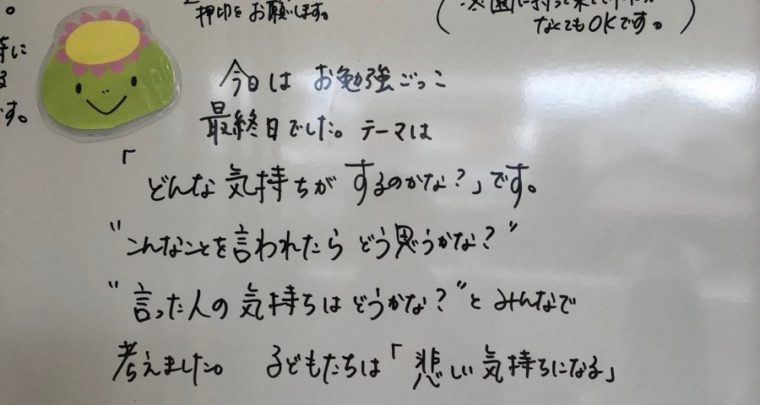 押印をお願いします。
なくてもOKです。)
今日は お勉強ごっこ
最終日でした。テーマは
「どんな気持ちが するのかな?」です。
"こんなことを言われたら どう思うかな?"
"言った人の気持ちは どうかな?"と みんなで
考えました。 子どもたちは「悲しい気持ちになる」